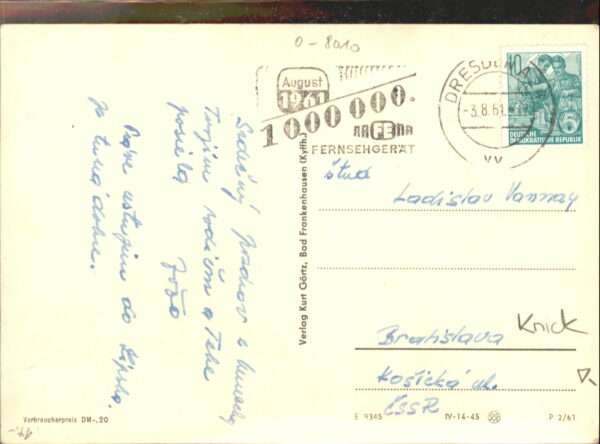 0-8010
August
1961
1000000.
RAFENA
FERNSEHGERÄT
DRESDEN
-3.8.61
10
DEUTSCHE
DEMOKRATISCHE REPUBLIK
Srdečný pozdrav
Tvojim rodičom a Tebe
posiela
Jožo
Práve ustupim do
Je tu
dobre.
Verlag Kurt Görtz, Bad Frankenhausen (Kyffh.)
štud
Ladislav
Bratislava
Knick
Košická ul.
ČSSR
Verbraucherpreis DM -,20
E 9345
IV-14-45
P 2/61